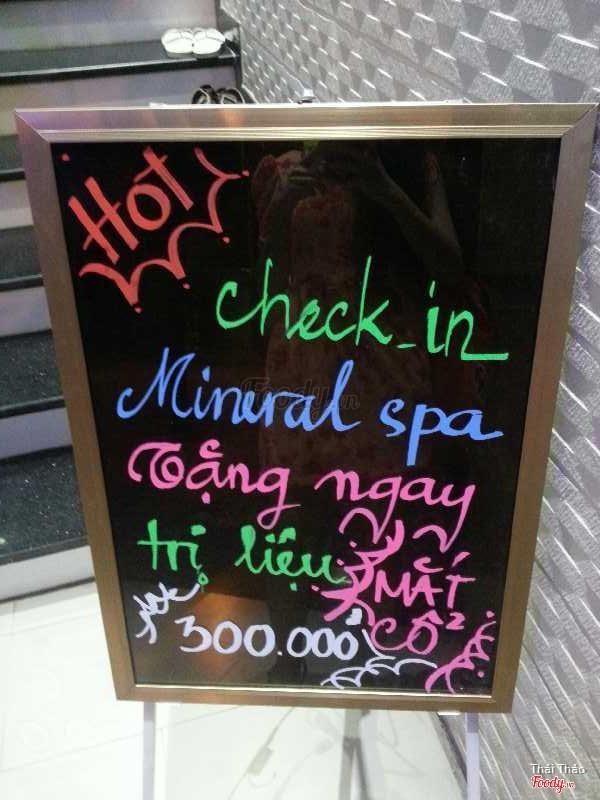 HOT
check_in
Mineral spa
Tặng ngay
trị liệu MẮT
300.000đ CỔ
Foody.vn
Thái Thảo
Foody.vn